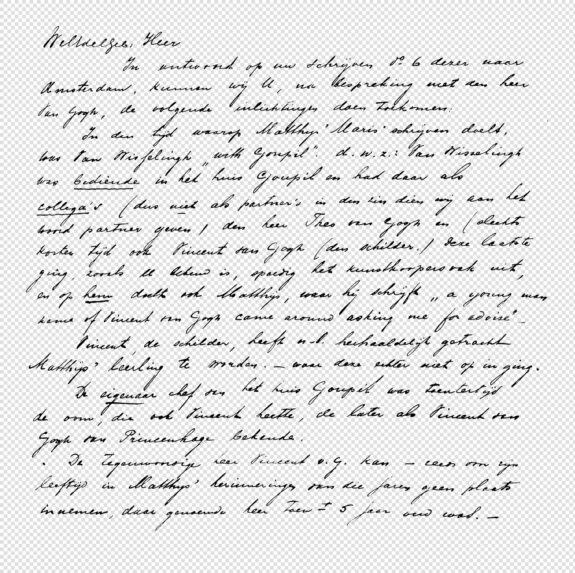 WelEdelGeb. Heer
In antwoord op uw schrijven dd 6 dezer naar
Amsterdam, kunnen wij U, na bespreking met den heer
Van Gogh, de volgende inlichtingen doen toekomen:
In den tijd waarop Matthijs Maris' schrijven doelt,
was Van Wisselingh „with Goupil". d.w.z.: Van Wisselingh
was bediende in het huis Goupil en had daar als
collega's (dus niet als partner's in den zin dien wij aan het
woord partner geven) den heer Theo van Gogh en (slechts
korten tijd ook Vincent van Gogh (den schilder.) Deze laatste
ging, zooals U bekend is, spoedig het kunstkoopersvak uit,
en op hem doelt ook Matthijs, waar hij schrijft „a young man
name of Vincent van Gogh came around asking me for advise"_
Vincent, de schilder, heeft n.l. herhaaldelijk getracht
Matthijs' leerling te worden. — waar deze echter niet op in ging.
De eigenaar chef van het huis Goupil was toentertijd
de oom, die ook Vincent heette, de later als Vincent van
Gogh van Princenhage bekende.
De tegenwoordige heer Vincent v. G. kan — reeds om zijn
leeftijd in Matthijs' herinneringen van die jaren geen plaats
innemen, daar genoemde heer toen ± 5 jaar oud was. —